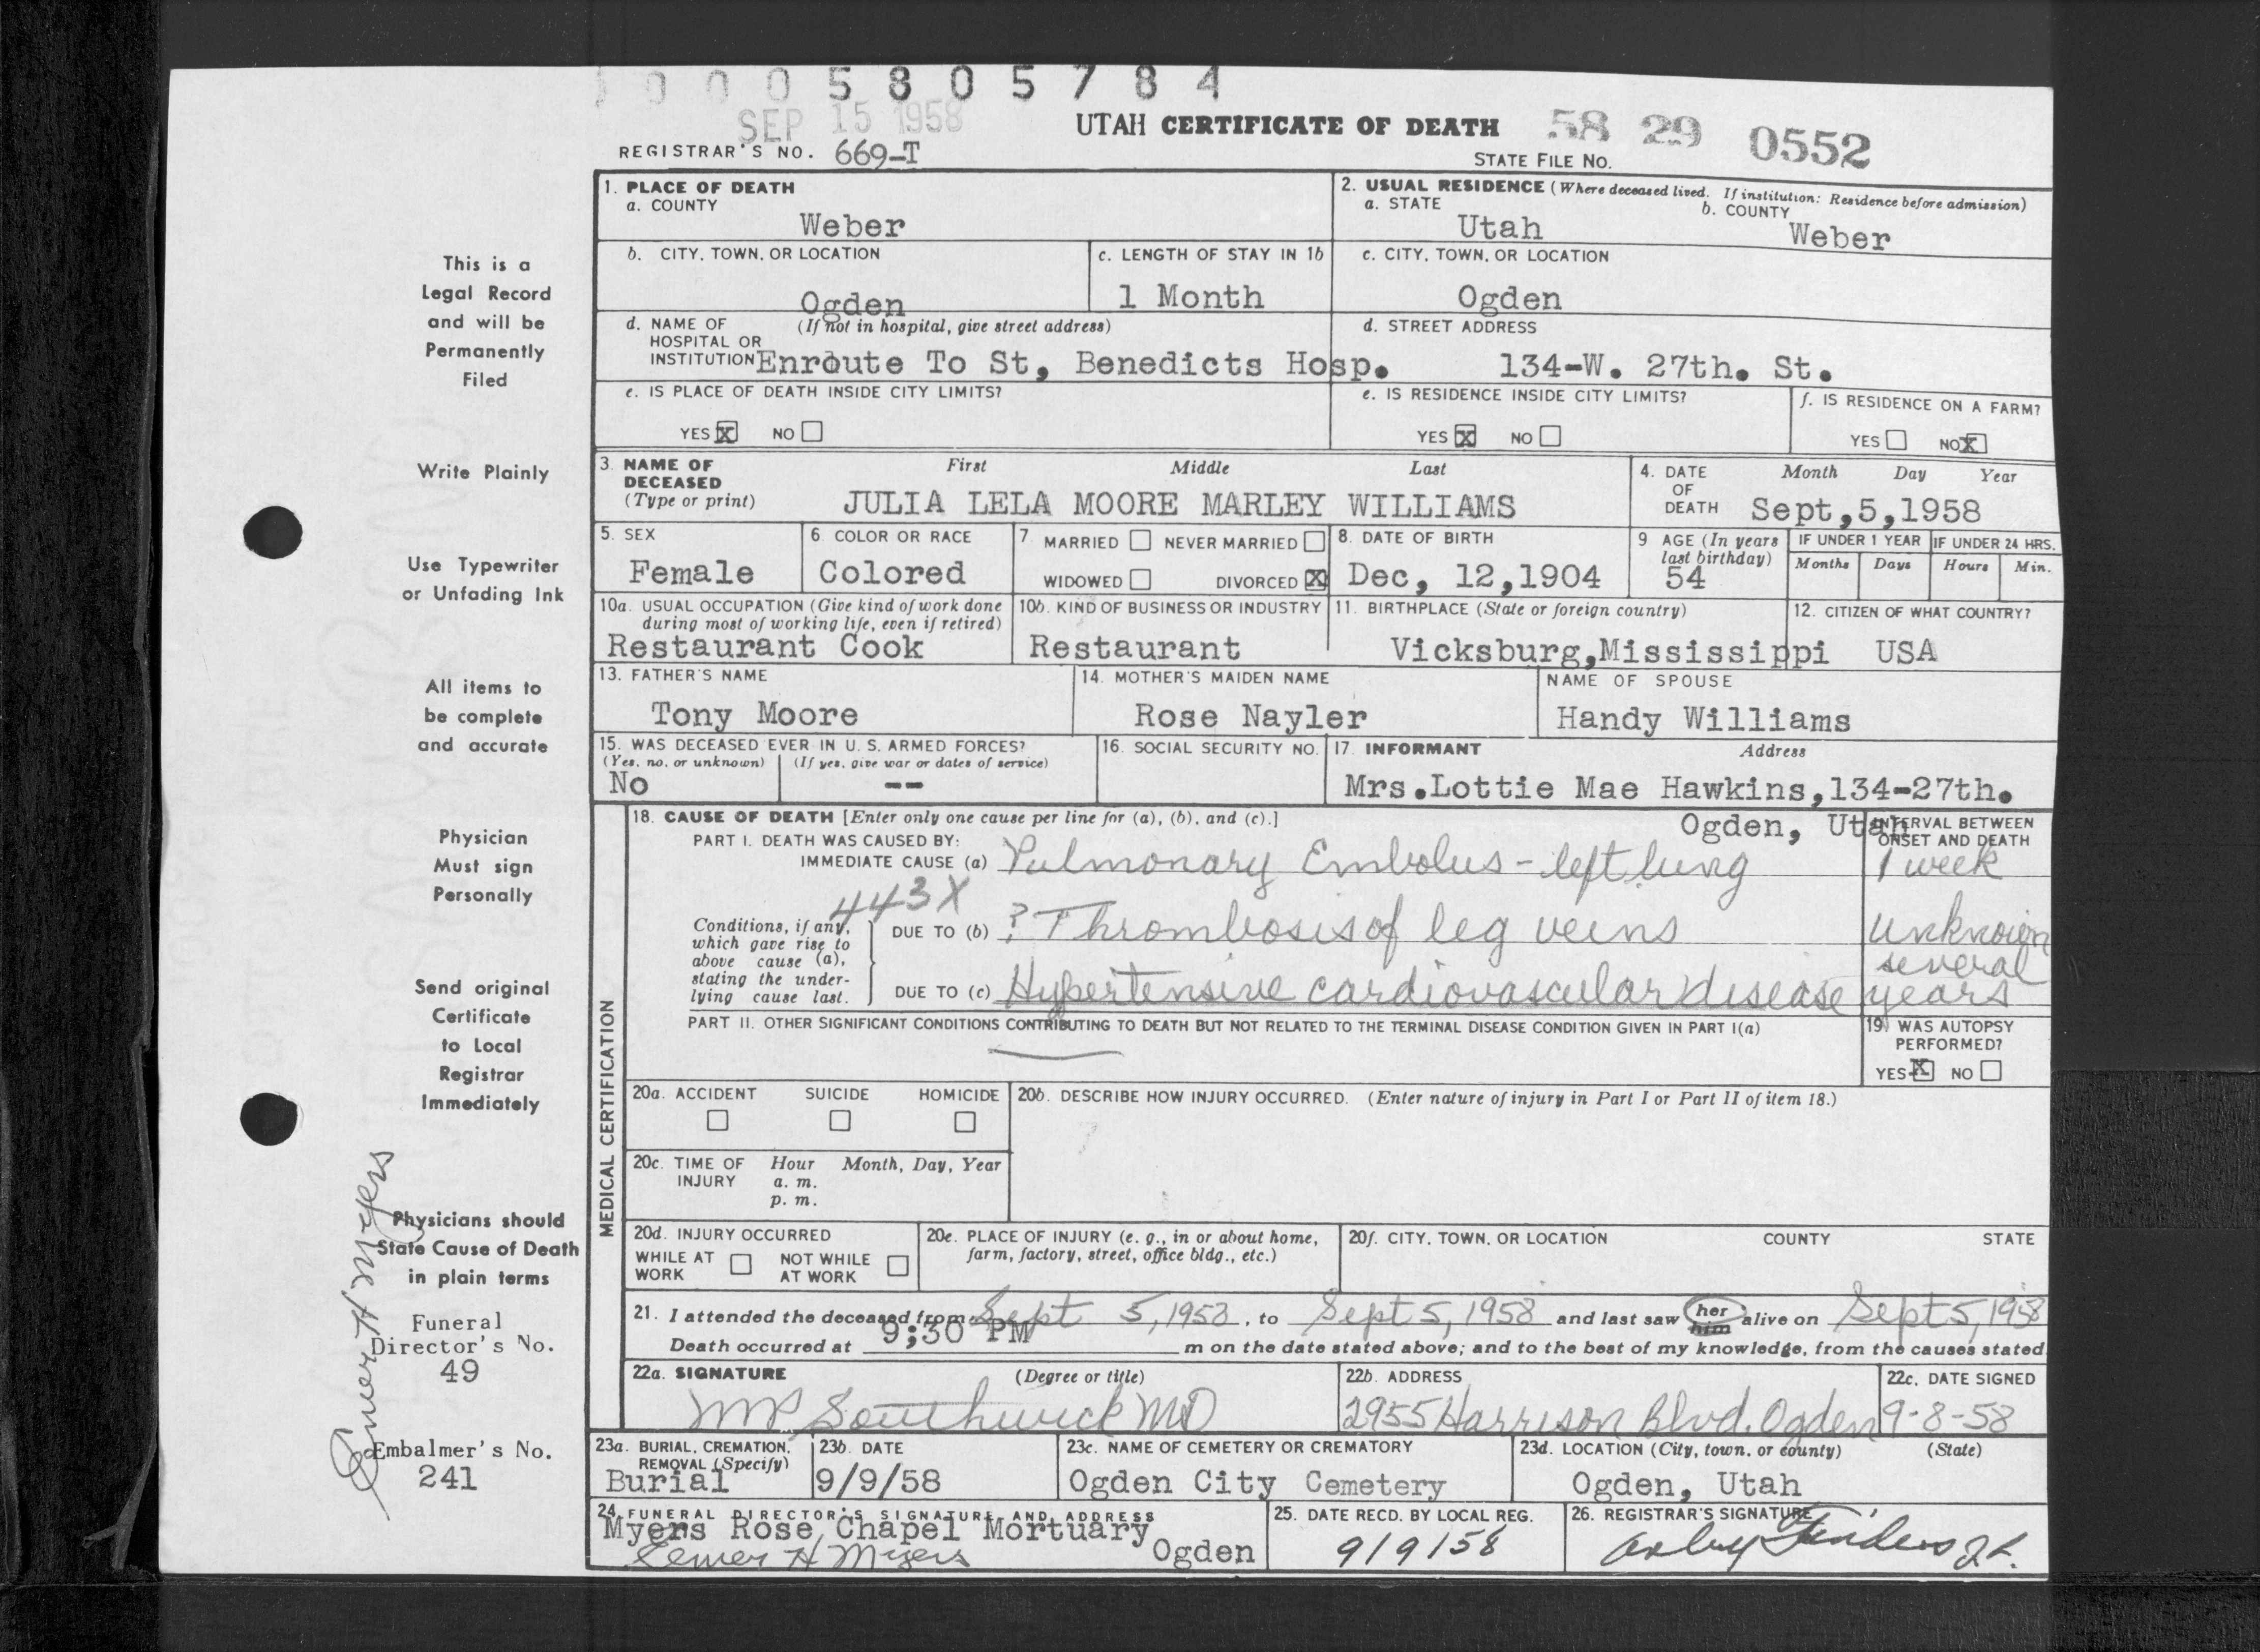 0 0 0 5 8 0 5 7 8 4
SEP 15 1958
UTAH CERTIFICATE OF DEATH 58 29 0552
REGISTRAR'S NO. 669-T
STATE FILE NO.
1. PLACE OF DEATH
a. COUNTY
Weber
2. USUAL RESIDENCE (Where deceased lived. If institution: Residence before admission)
a. STATE
Utah
b. COUNTY
Weber
b. CITY, TOWN, OR LOCATION
Ogden
c. LENGTH OF STAY IN 1b
1 Month
c. CITY, TOWN, OR LOCATION
Ogden
d. NAME OF (If not in hospital, give street address)
HOSPITAL OR
INSTITUTION Enroute To St, Benedicts Hosp.
d. STREET ADDRESS
134-W. 27th. St.
e. IS PLACE OF DEATH INSIDE CITY LIMITS?
YES X NO
e. IS RESIDENCE INSIDE CITY LIMITS?
YES X NO
f. IS RESIDENCE ON A FARM?
YES NO X
3. NAME OF
DECEASED
(Type or print)
First Middle Last
JULIA LELA MOORE MARLEY WILLIAMS
4. DATE
OF
DEATH
Month Day Year
Sept,5,1958
5. SEX
Female
6. COLOR OR RACE
Colored
7. MARRIED NEVER MARRIED
WIDOWED DIVORCED X
8. DATE OF BIRTH
Dec, 12,1904
9 AGE (In years
last birthday)
54
IF UNDER 1 YEAR
Months Days
IF UNDER 24 HRS.
Hours Min.
10a. USUAL OCCUPATION (Give kind of work done
during most of working life, even if retired)
Restaurant Cook
10b. KIND OF BUSINESS OR INDUSTRY
Restaurant
11. BIRTHPLACE (State or foreign country)
Vicksburg,Mississippi
12. CITIZEN OF WHAT COUNTRY?
USA
13. FATHER'S NAME
Tony Moore
14. MOTHER'S MAIDEN NAME
Rose Nayler
NAME OF SPOUSE
Handy Williams
15. WAS DECEASED EVER IN U. S. ARMED FORCES?
(Yes, no, or unknown) (If yes, give war or dates of service)
No --
16. SOCIAL SECURITY NO.
17. INFORMANT Address
Mrs.Lottie Mae Hawkins,134-27th.
Ogden, Utah
MEDICAL CERTIFICATION
18. CAUSE OF DEATH [Enter only one cause per line for (a), (b), and (c).]
INTERVAL BETWEEN
ONSET AND DEATH
PART I. DEATH WAS CAUSED BY:
IMMEDIATE CAUSE (a) Pulmonary Embolus - left lung
1 week
443X
Conditions, if any,
which gave rise to
above cause (a),
stating the under-
lying cause last.
DUE TO (b) ? Thrombosis of leg veins
unknown
DUE TO (c) Hypertensive cardiovascular disease
several
years
PART II. OTHER SIGNIFICANT CONDITIONS CONTRIBUTING TO DEATH BUT NOT RELATED TO THE TERMINAL DISEASE CONDITION GIVEN IN PART I(a)
19. WAS AUTOPSY
PERFORMED?
YES X NO
20a. ACCIDENT SUICIDE HOMICIDE
20b. DESCRIBE HOW INJURY OCCURRED. (Enter nature of injury in Part I or Part II of item 18.)
20c. TIME OF Hour Month, Day, Year
INJURY a. m.
p. m.
20d. INJURY OCCURRED
WHILE AT NOT WHILE
WORK AT WORK
20e. PLACE OF INJURY (e. g., in or about home,
farm, factory, street, office bldg., etc.)
20f. CITY, TOWN, OR LOCATION COUNTY STATE
21. I attended the deceased from Sept 5, 1958, to Sept 5, 1958 and last saw her him alive on Sept 5, 1958
Death occurred at 9;30 PM m on the date stated above; and to the best of my knowledge, from the causes stated
22a. SIGNATURE (Degree or title)
MP Southwick MD
22b. ADDRESS
2955 Harrison Blvd. Ogden
22c. DATE SIGNED
9-8-58
23a. BURIAL, CREMATION,
REMOVAL (Specify)
Burial
23b. DATE
9/9/58
23c. NAME OF CEMETERY OR CREMATORY
Ogden City Cemetery
23d. LOCATION (City, town, or county) (State)
Ogden, Utah
24. FUNERAL DIRECTOR'S SIGNATURE AND ADDRESS
Myers Rose Chapel Mortuary
Elmer H Myers Ogden
25. DATE RECD. BY LOCAL REG.
9/9/58
26. REGISTRAR'S SIGNATURE
This is a
Legal Record
and will be
Permanently
Filed
Write Plainly
Use Typewriter
or Unfading Ink
All items to
be complete
and accurate
Physician
Must sign
Personally
Send original
Certificate
to Local
Registrar
Immediately
Physicians should
State Cause of Death
in plain terms
Funeral
Director's No.
49
Embalmer's No.
241
Elmer H Myers